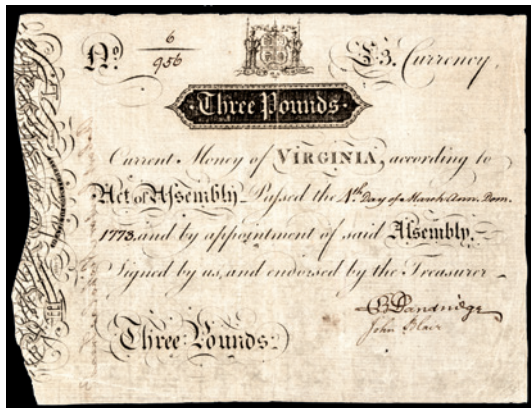 No. 6 £3. Currency,
956
Three Pounds
Current Money of VIRGINIA, according to
Act of Assembly Passed the 4th Day of March Ann. Dom.
1773, and by appointment of said Assembly.
Signed by us, and endorsed by the Treasurer
Dandridge
John Blair
Three Pounds